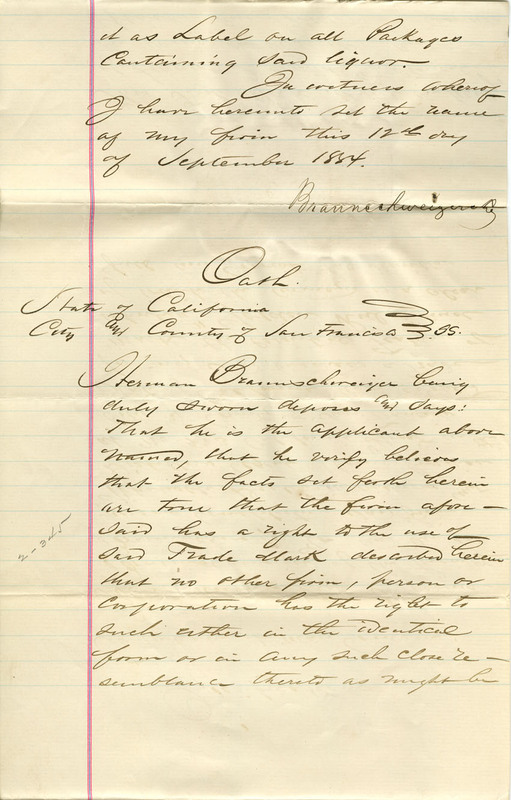 it as Label on all Packages
Containing said liquor.
In witness whereof
I have hereunto set the name
of my firm this 12th day
of September 1884.
Braunschweiger & Co
Oath.
State of California
City and County of San Francisco SS.
Herman Braunschweiger being
duly sworn deposes and says:
That he is the applicant above
named, that he verify believes
that the facts set forth herein
are true that the firm afore-
said has a right to the use of
said Trade Mark described herein
that no other firm, person or
Corporation has the right to
such either in the identical
form or in any such close re-
semblance thereto as might be
2-325